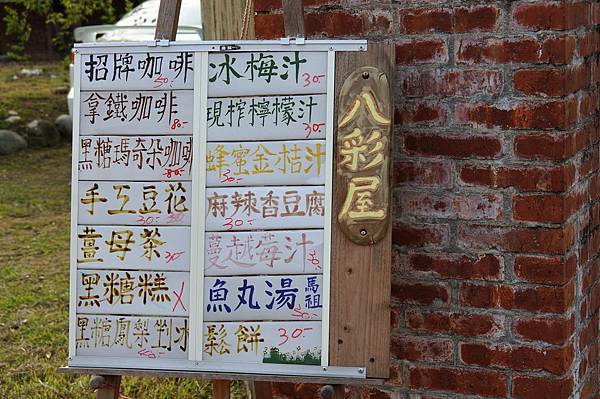 招牌咖啡 50.-
拿鐵咖啡 80.-
黑糖瑪奇朵咖啡 80.-
手工豆花 30.-
薑母茶 30.-
黑糖糕 X
黑糖鳳梨剉冰
冰梅汁 30.-
現榨檸檬汁 30.-
蜂蜜金桔汁 30.-
麻辣香豆腐 40.-
蔓越莓汁
魚丸湯 馬祖 30.-
鬆餅 30.-
八彩屋